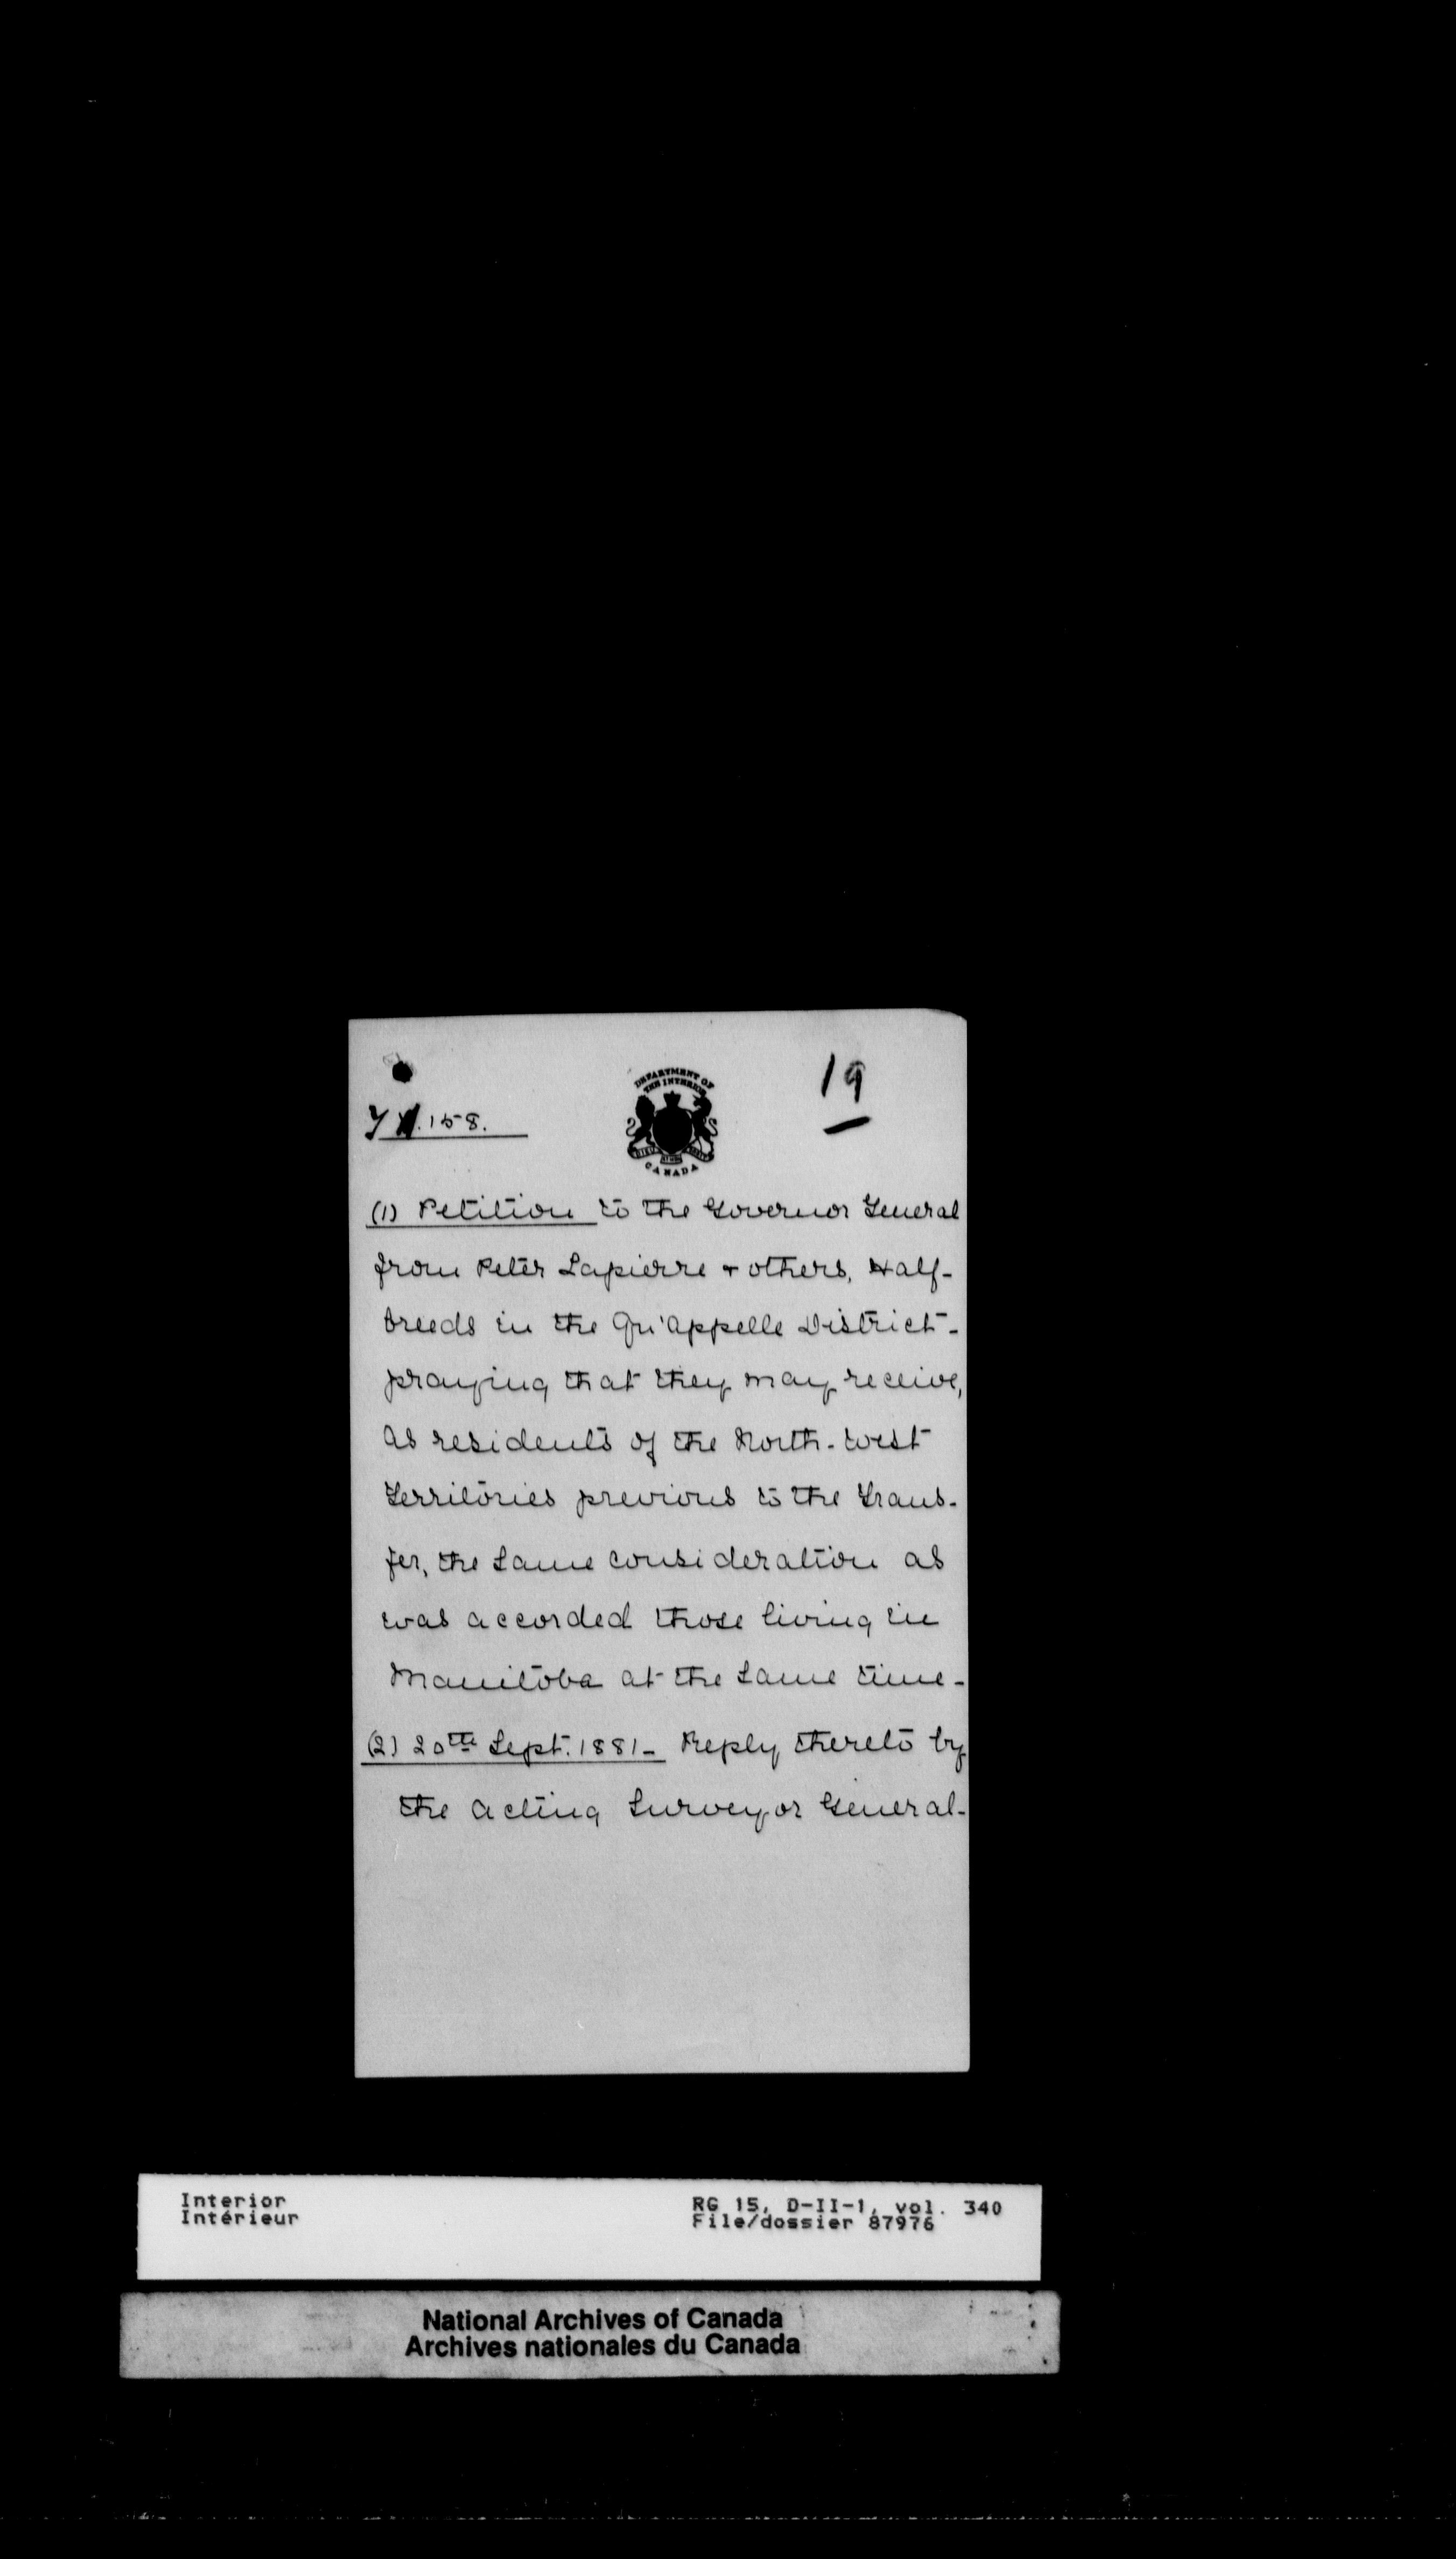 19
158.
DEPARTMENT OF
THE INTERIOR
CANADA
(1) Petition to the Governor General
from Peter Lapierre + others, Half-
breeds in the Qu'Appelle District-
praying that they may receive,
as residents of the North-West
Territories previous to the Trans-
fer, the same consideration as
was accorded those living in
Manitoba at the same time-
(2) 20th Sept. 1881- Reply thereto by
the Acting Surveyor General-
Interior
Intérieur
RG 15, D-II-1, vol. 340
File/dossier 87976
National Archives of Canada
Archives nationales du Canada